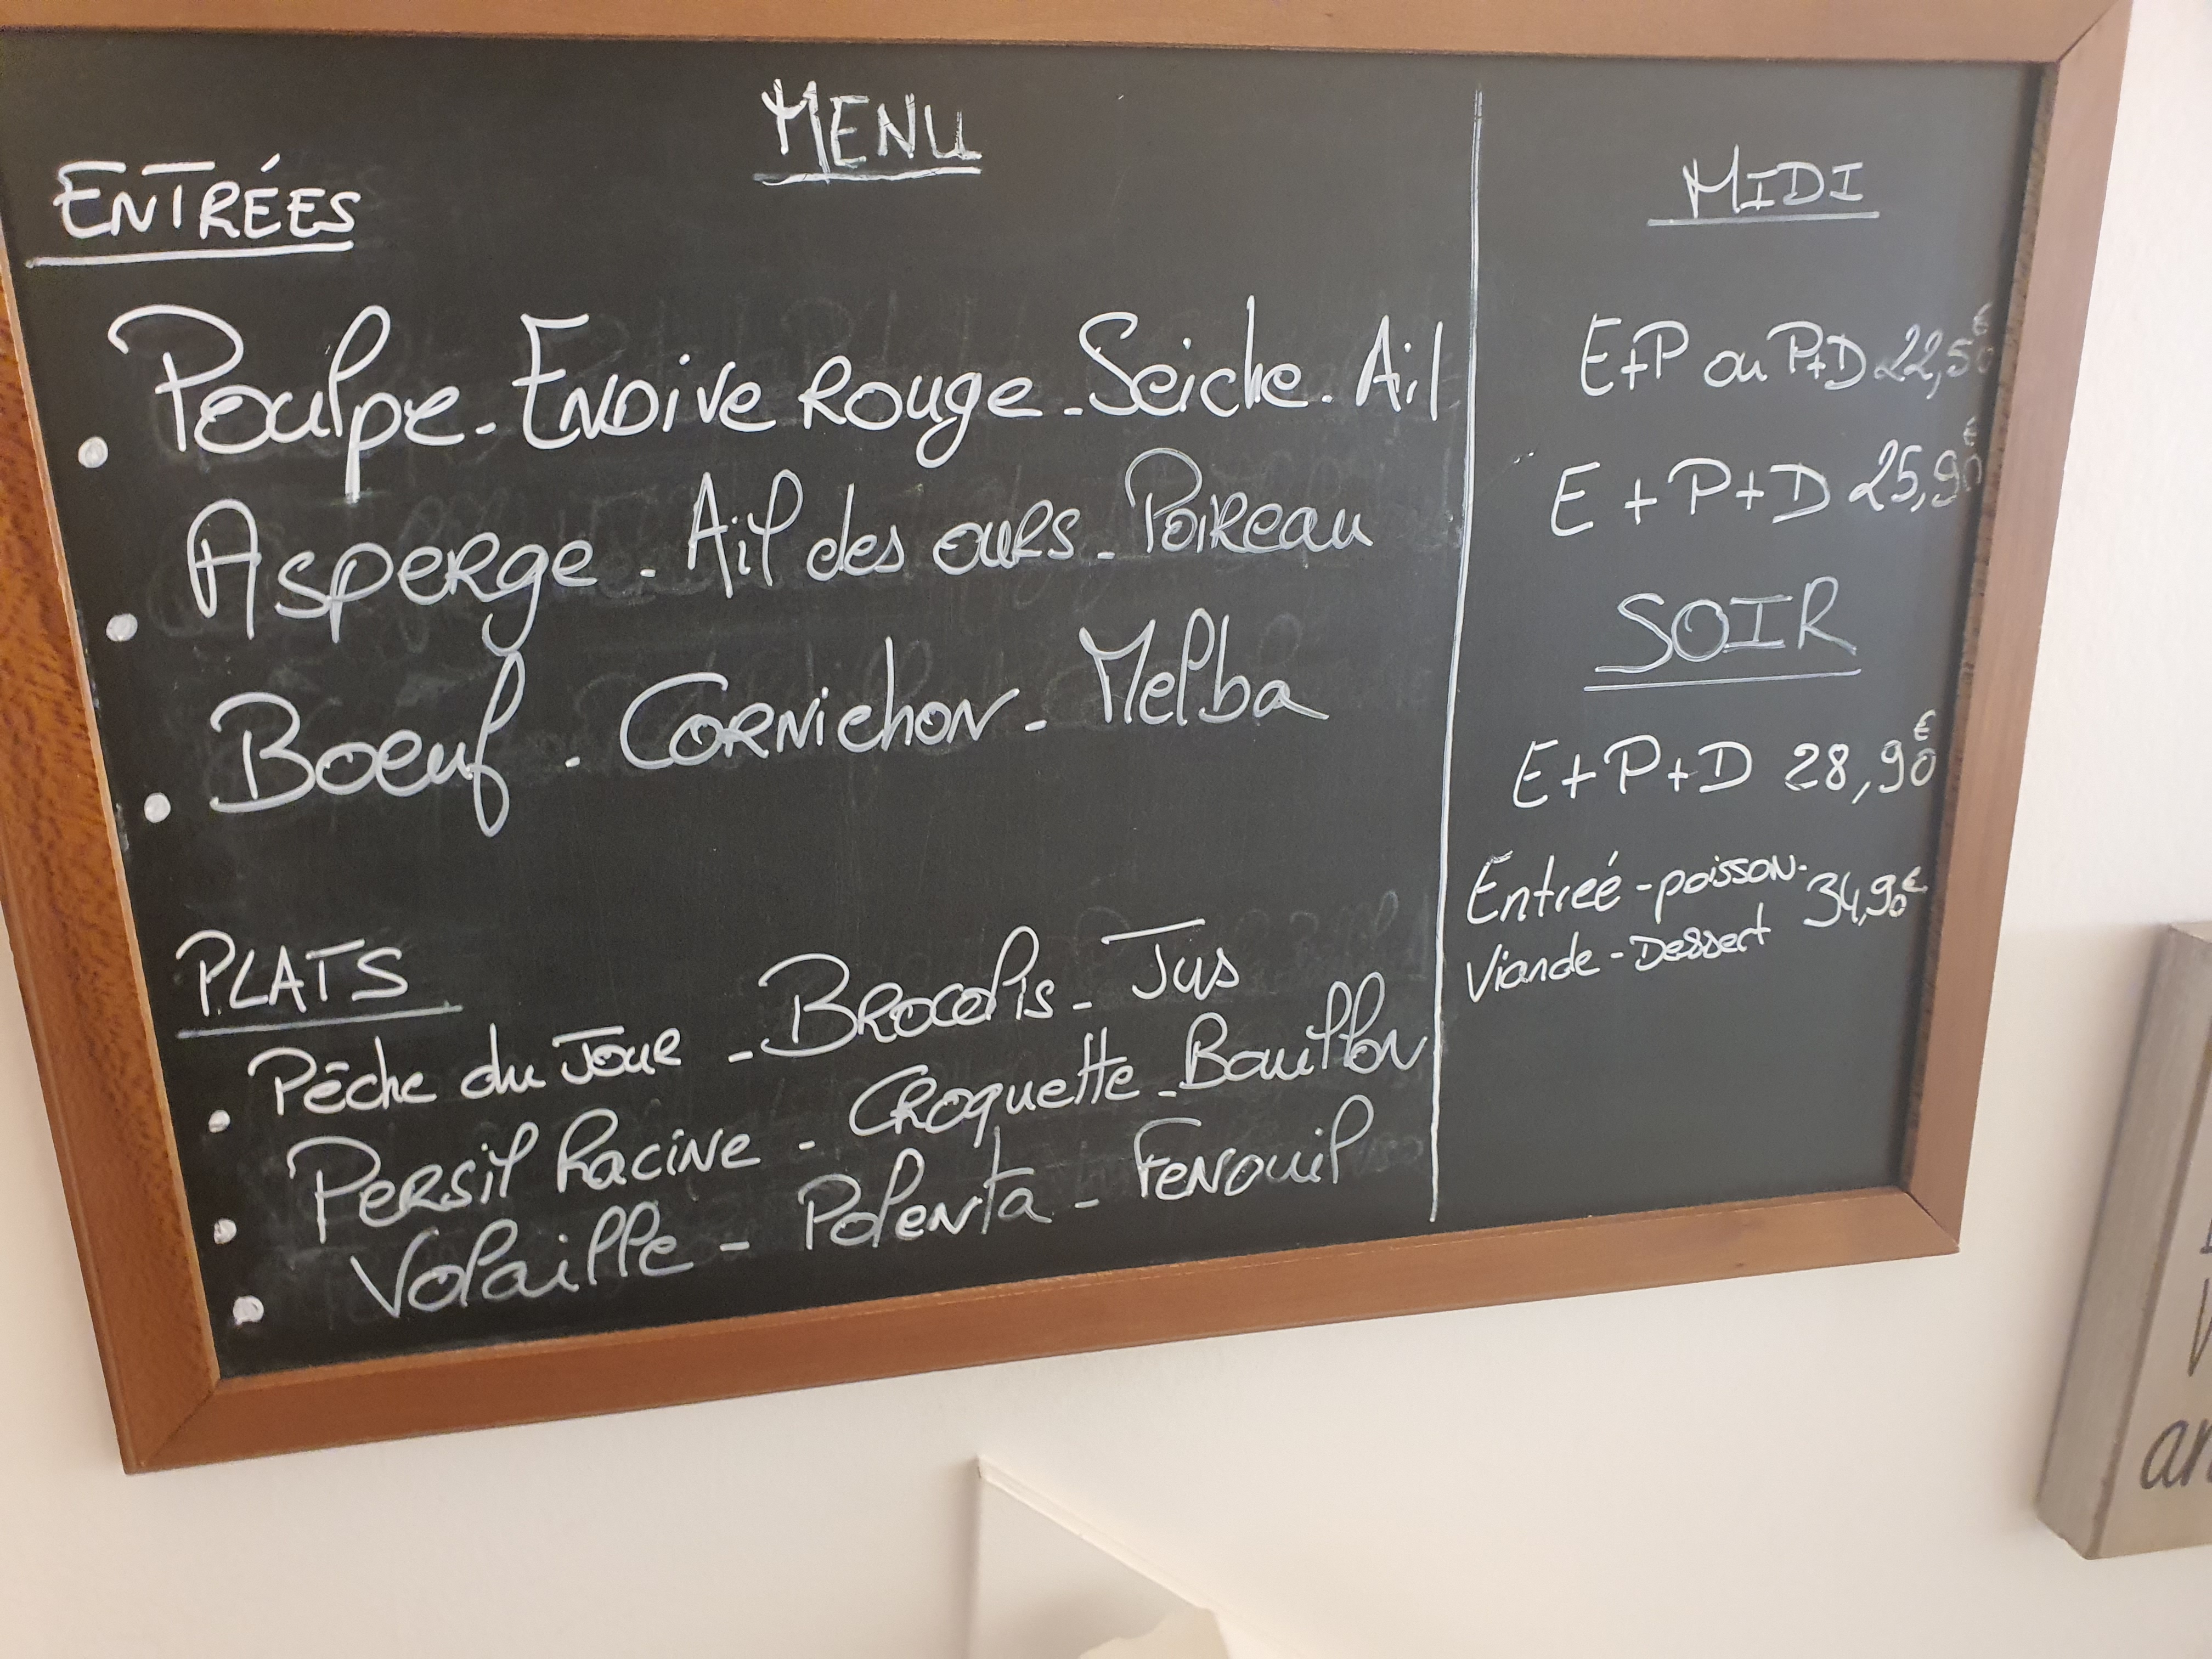 MENU
ENTRÉES
. Poulpe - Endive Rouge - Seiche - Ail
. Asperge - Ail des ours - Poireau
. Boeuf - Cornichon - Melba
PLATS
. Pêche du Jour - Brocolis - Jus
. Persil Racine - Croquette - Bouillon
. Volaille - Polenta - Fenouil
MIDI
E+P ou P+D 22,50€
E+P+D 25,90€
SOIR
E+P+D 28,90€
Entreé - poisson - 34,90€
Viande - Dessert